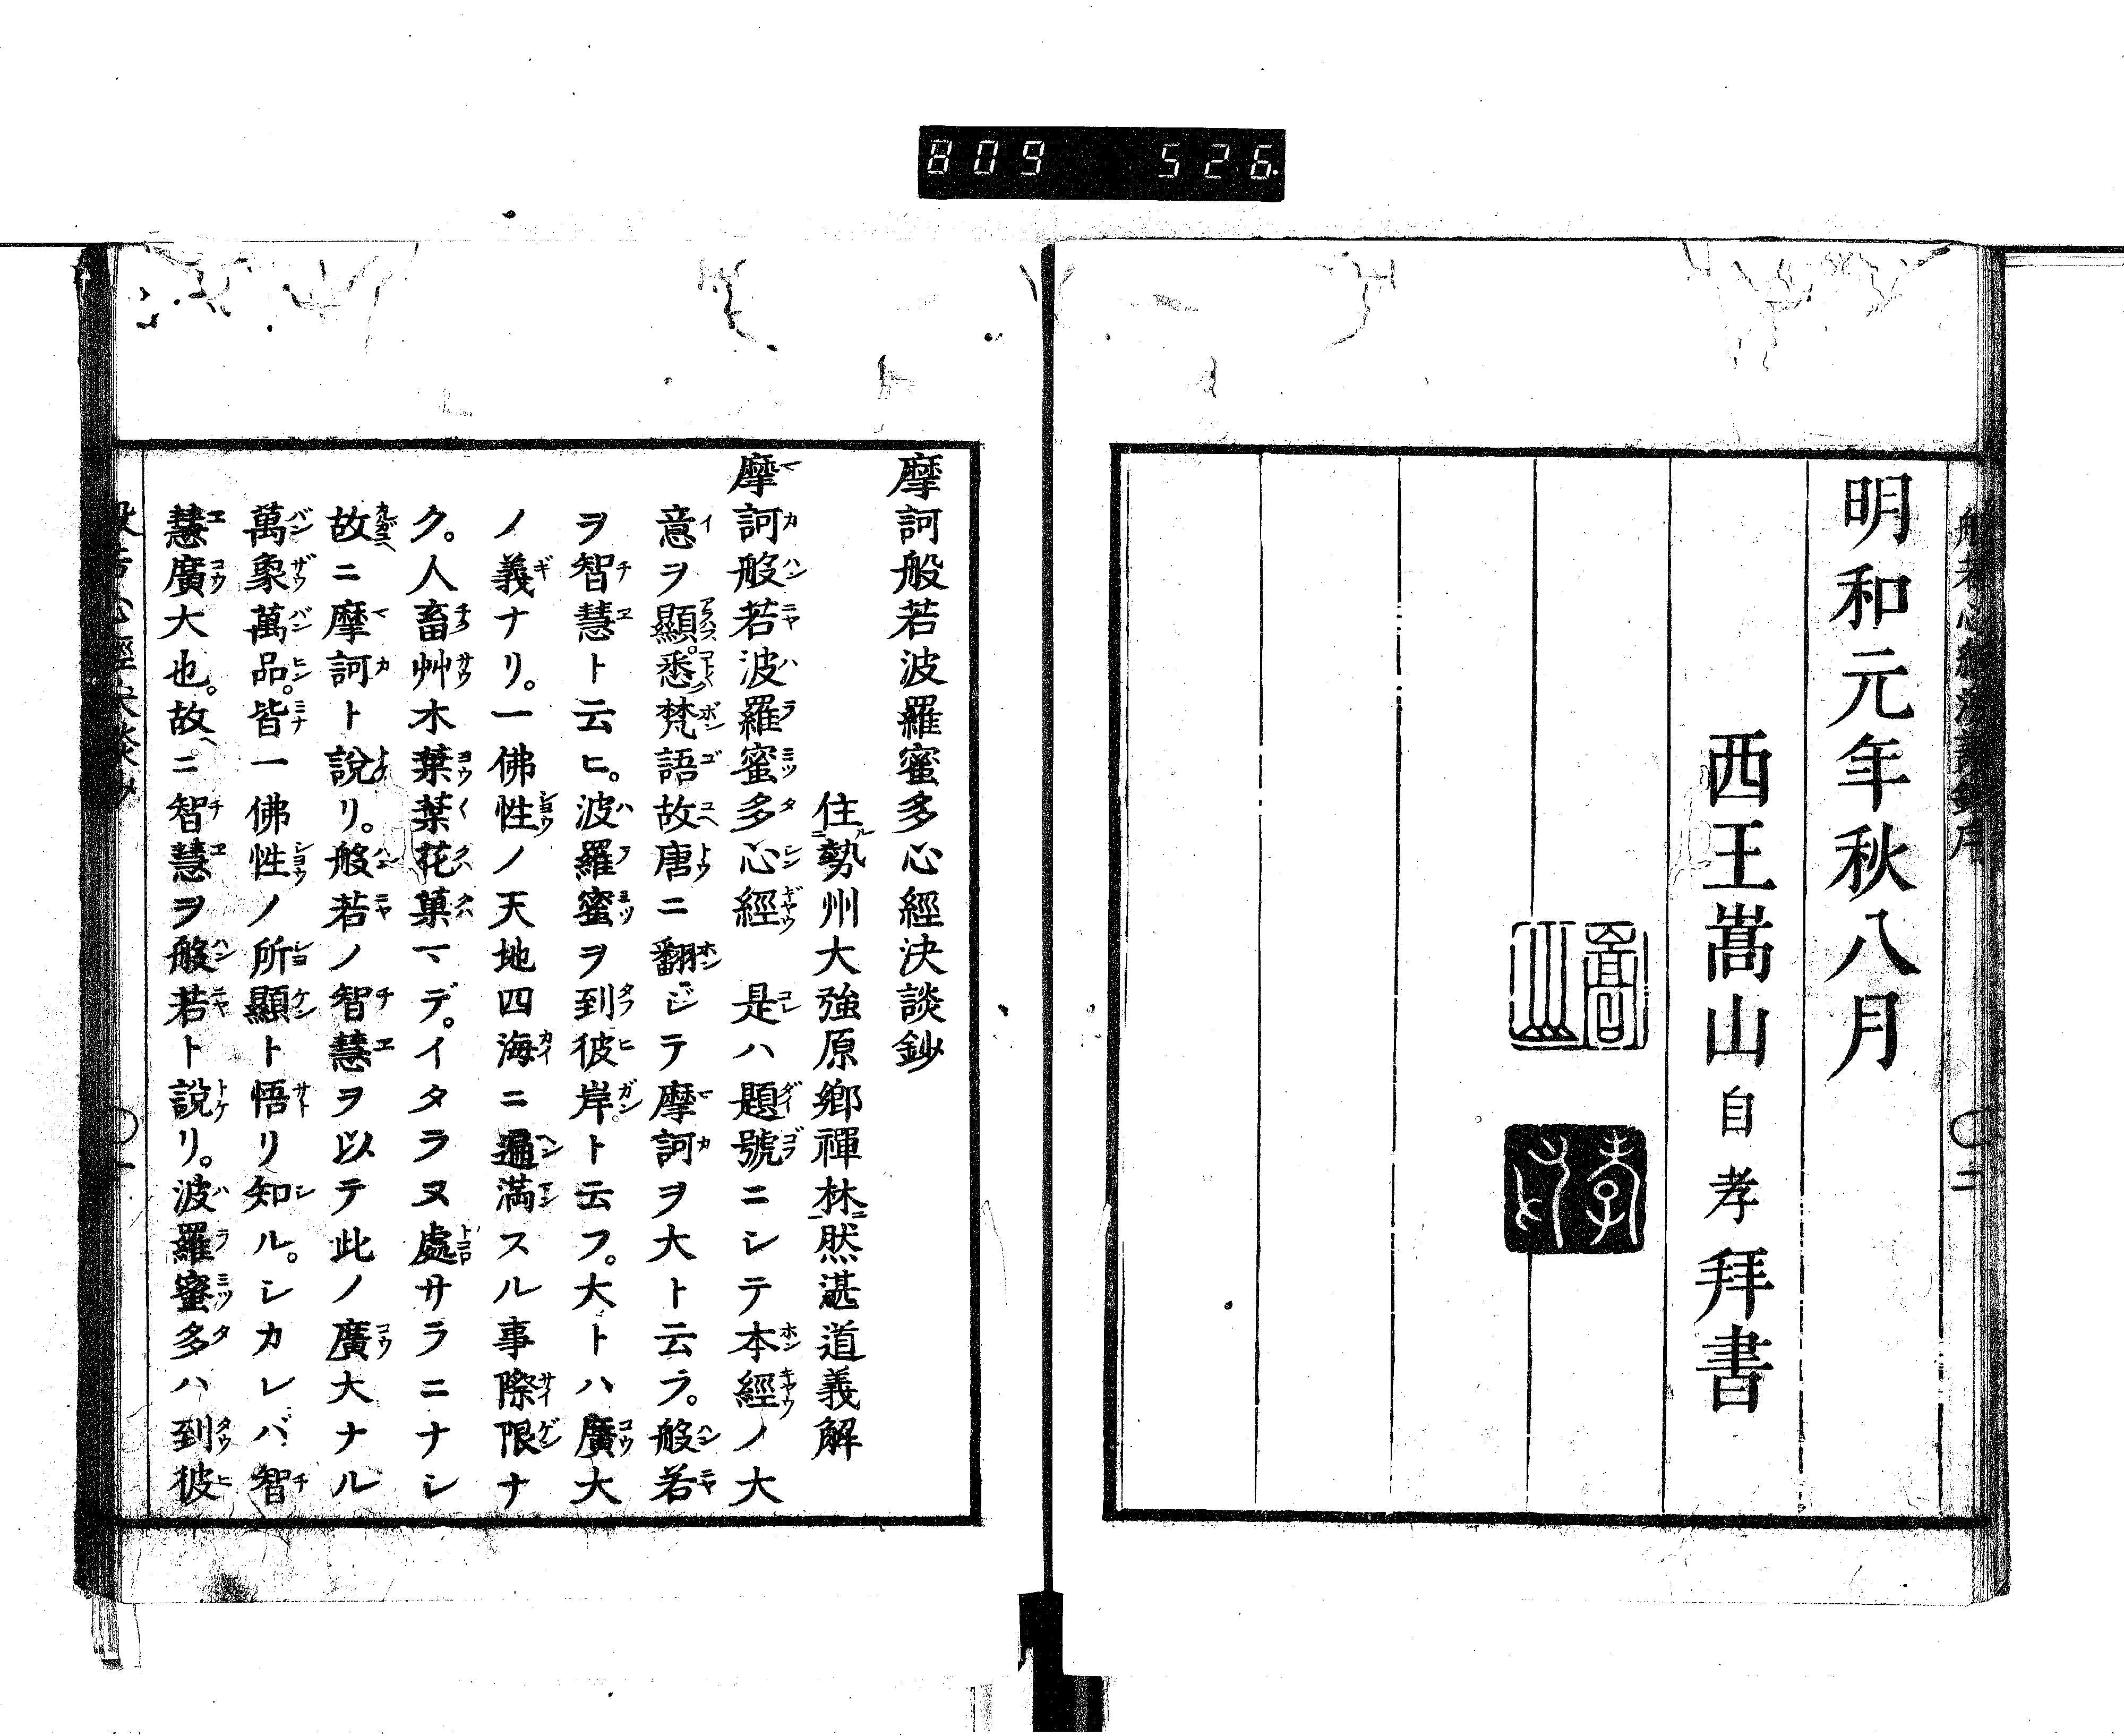 809 526
明和元年秋八月
西王嵩山自孝拜書
嵩山
般若心經決談鈔序
二
摩訶般若波羅蜜多心經決談鈔
住勢州大強原鄉禪林然湛道義解
摩訶般若波羅蜜多心經　是ハ題號ニシテ本經ノ大
意ヲ顯。悉梵語故唐ニ翻ジテ摩訶ヲ大ト云ラ。般若
ヲ智慧ト云ヒ。波羅蜜ヲ到彼岸。ト云フ。大トハ廣大
ノ義ナリ。一佛性ノ天地四海ニ遍滿スル事際限ナ
ク。人畜艸木葉葉花菓マデ。イタラヌ處サラニナシ
故ニ摩訶ト說リ。般若ノ智慧ヲ以テ此ノ廣大ナル
萬象萬品。皆一佛性ノ所顯ト悟リ知ル。シカレバ智
慧廣大也。故ニ智慧ヲ般若ト說リ。波羅蜜多ハ到彼
般若心經決談鈔
一